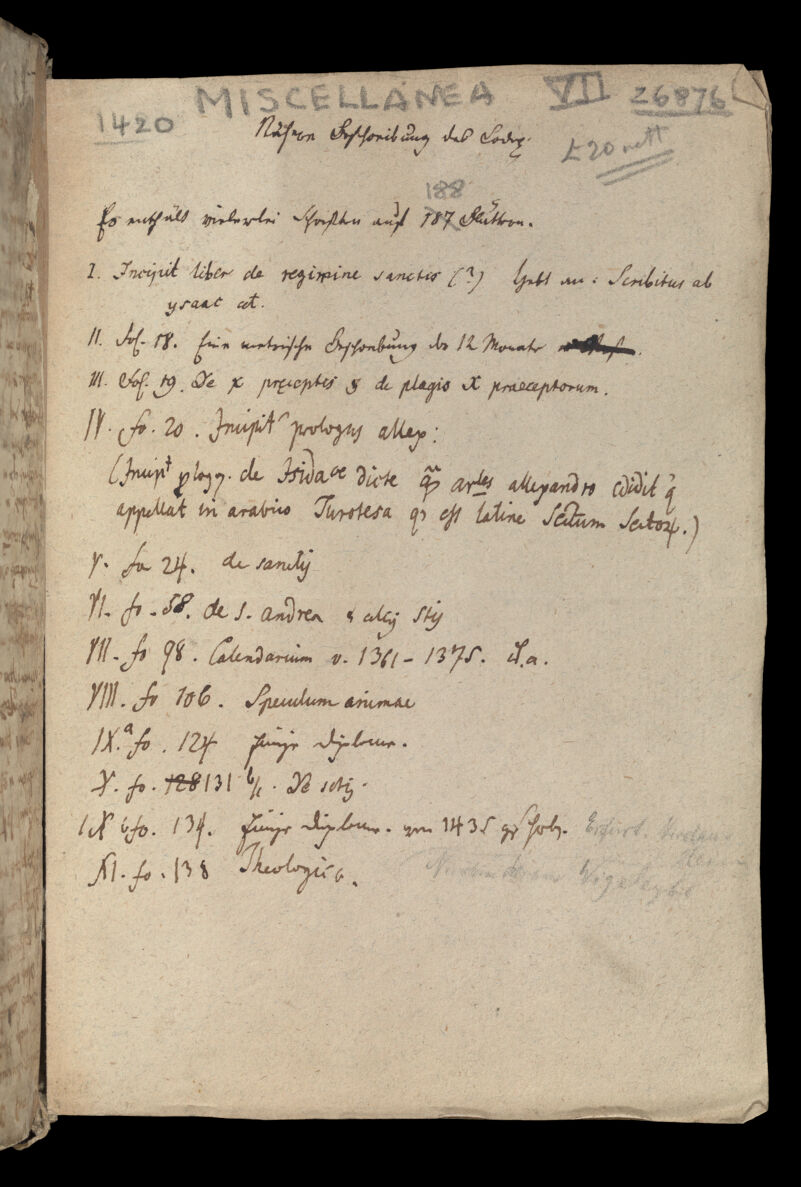 1420 MISCELLANEA VII 26876
Nähere Beschreibung des Codex.
£20 nett
188
Es enthält vielerlei Schriften auf 187 Blättern.
I. Incipit liber de regimine sanctis (?) Geht an: Scribitus ab
ysaac
II. Fol. 18. Eine metrische Beschreibung der 12 Monate
III. Fol. 19. De x preceptis & de plagis X praeceptorum.
IV. fo. 20. Incipit prologus allex:
(Incipit plogg. de dicte allexandro edidit
appellat in arabico Turotesa qd est latine Sectum Sectorꝝ.)
V. fo 24. de sanctis
VI. fo. 58. de s. andrea & aliis stis
VII. fo 98. Calendarium v. 1361 - 1375. u.a.
VIII. fo 106. Speculum animae
IX.a fo. 124 einige Diplome.
X. fo. 128 131 b/. De sctis.
IX b fo. 134. einige Diplome. von 1435
Erfurt.
XI. fo. 138 Theologica.